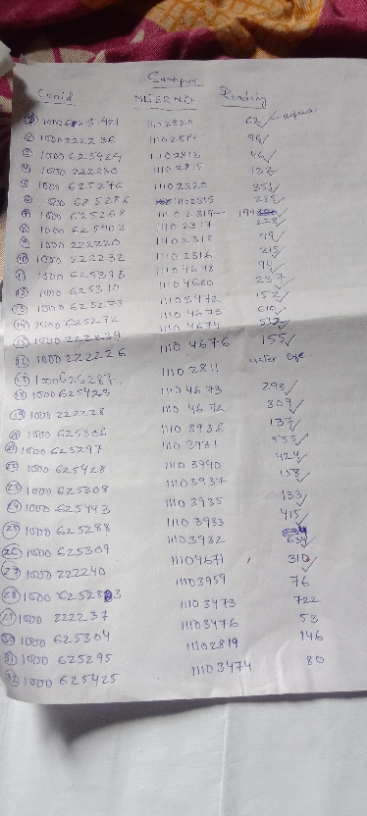 Conid METERNO Reading
① 11102820 62
② 1000 222236 11102814 94
③ 1000 625424 11102813 46
④ 1000 222230 11102815 132
⑤ 1000 625276 11102320 351
⑥ 1000 625286 11102315 235
⑦ 1000 625268 194
⑧ 1000 625402 11102317 228
⑨ 1000 222220 11102318 79
⑩ 1000 222232 11102316 215
⑪ 1000 625393 11104678 94
⑫ 1000 625310 11104680 237
⑬ 1000 625273 11103472 152
⑭ 1000 625272 11104675 610
⑮ 1000 222229 11104674
⑯ 1000 222226 11104676 155
⑰ 1000625287 11102811 meter
⑱ 1000 625423 11104673 293
⑲ 1000 222228 11104672 309
⑳ 1000 625306 11103936 137
㉑ 1000 625297 11103931
㉒ 1000 625428 11103940 424
㉓ 1000 625308 11103937 158
㉔ 1000 625443 11103935 133
㉕ 1000 625288 11103933 415
㉖ 1000 625309 11103932 634
㉗ 1000 222240 11104671 310
㉘ 1000 625283 11103959 76
㉙ 1000 222237 11103473 722
㉚ 1000 625304 11103476 53
㉛ 1000 625295 11102819 146
㉜ 1000 625425 11103474 80